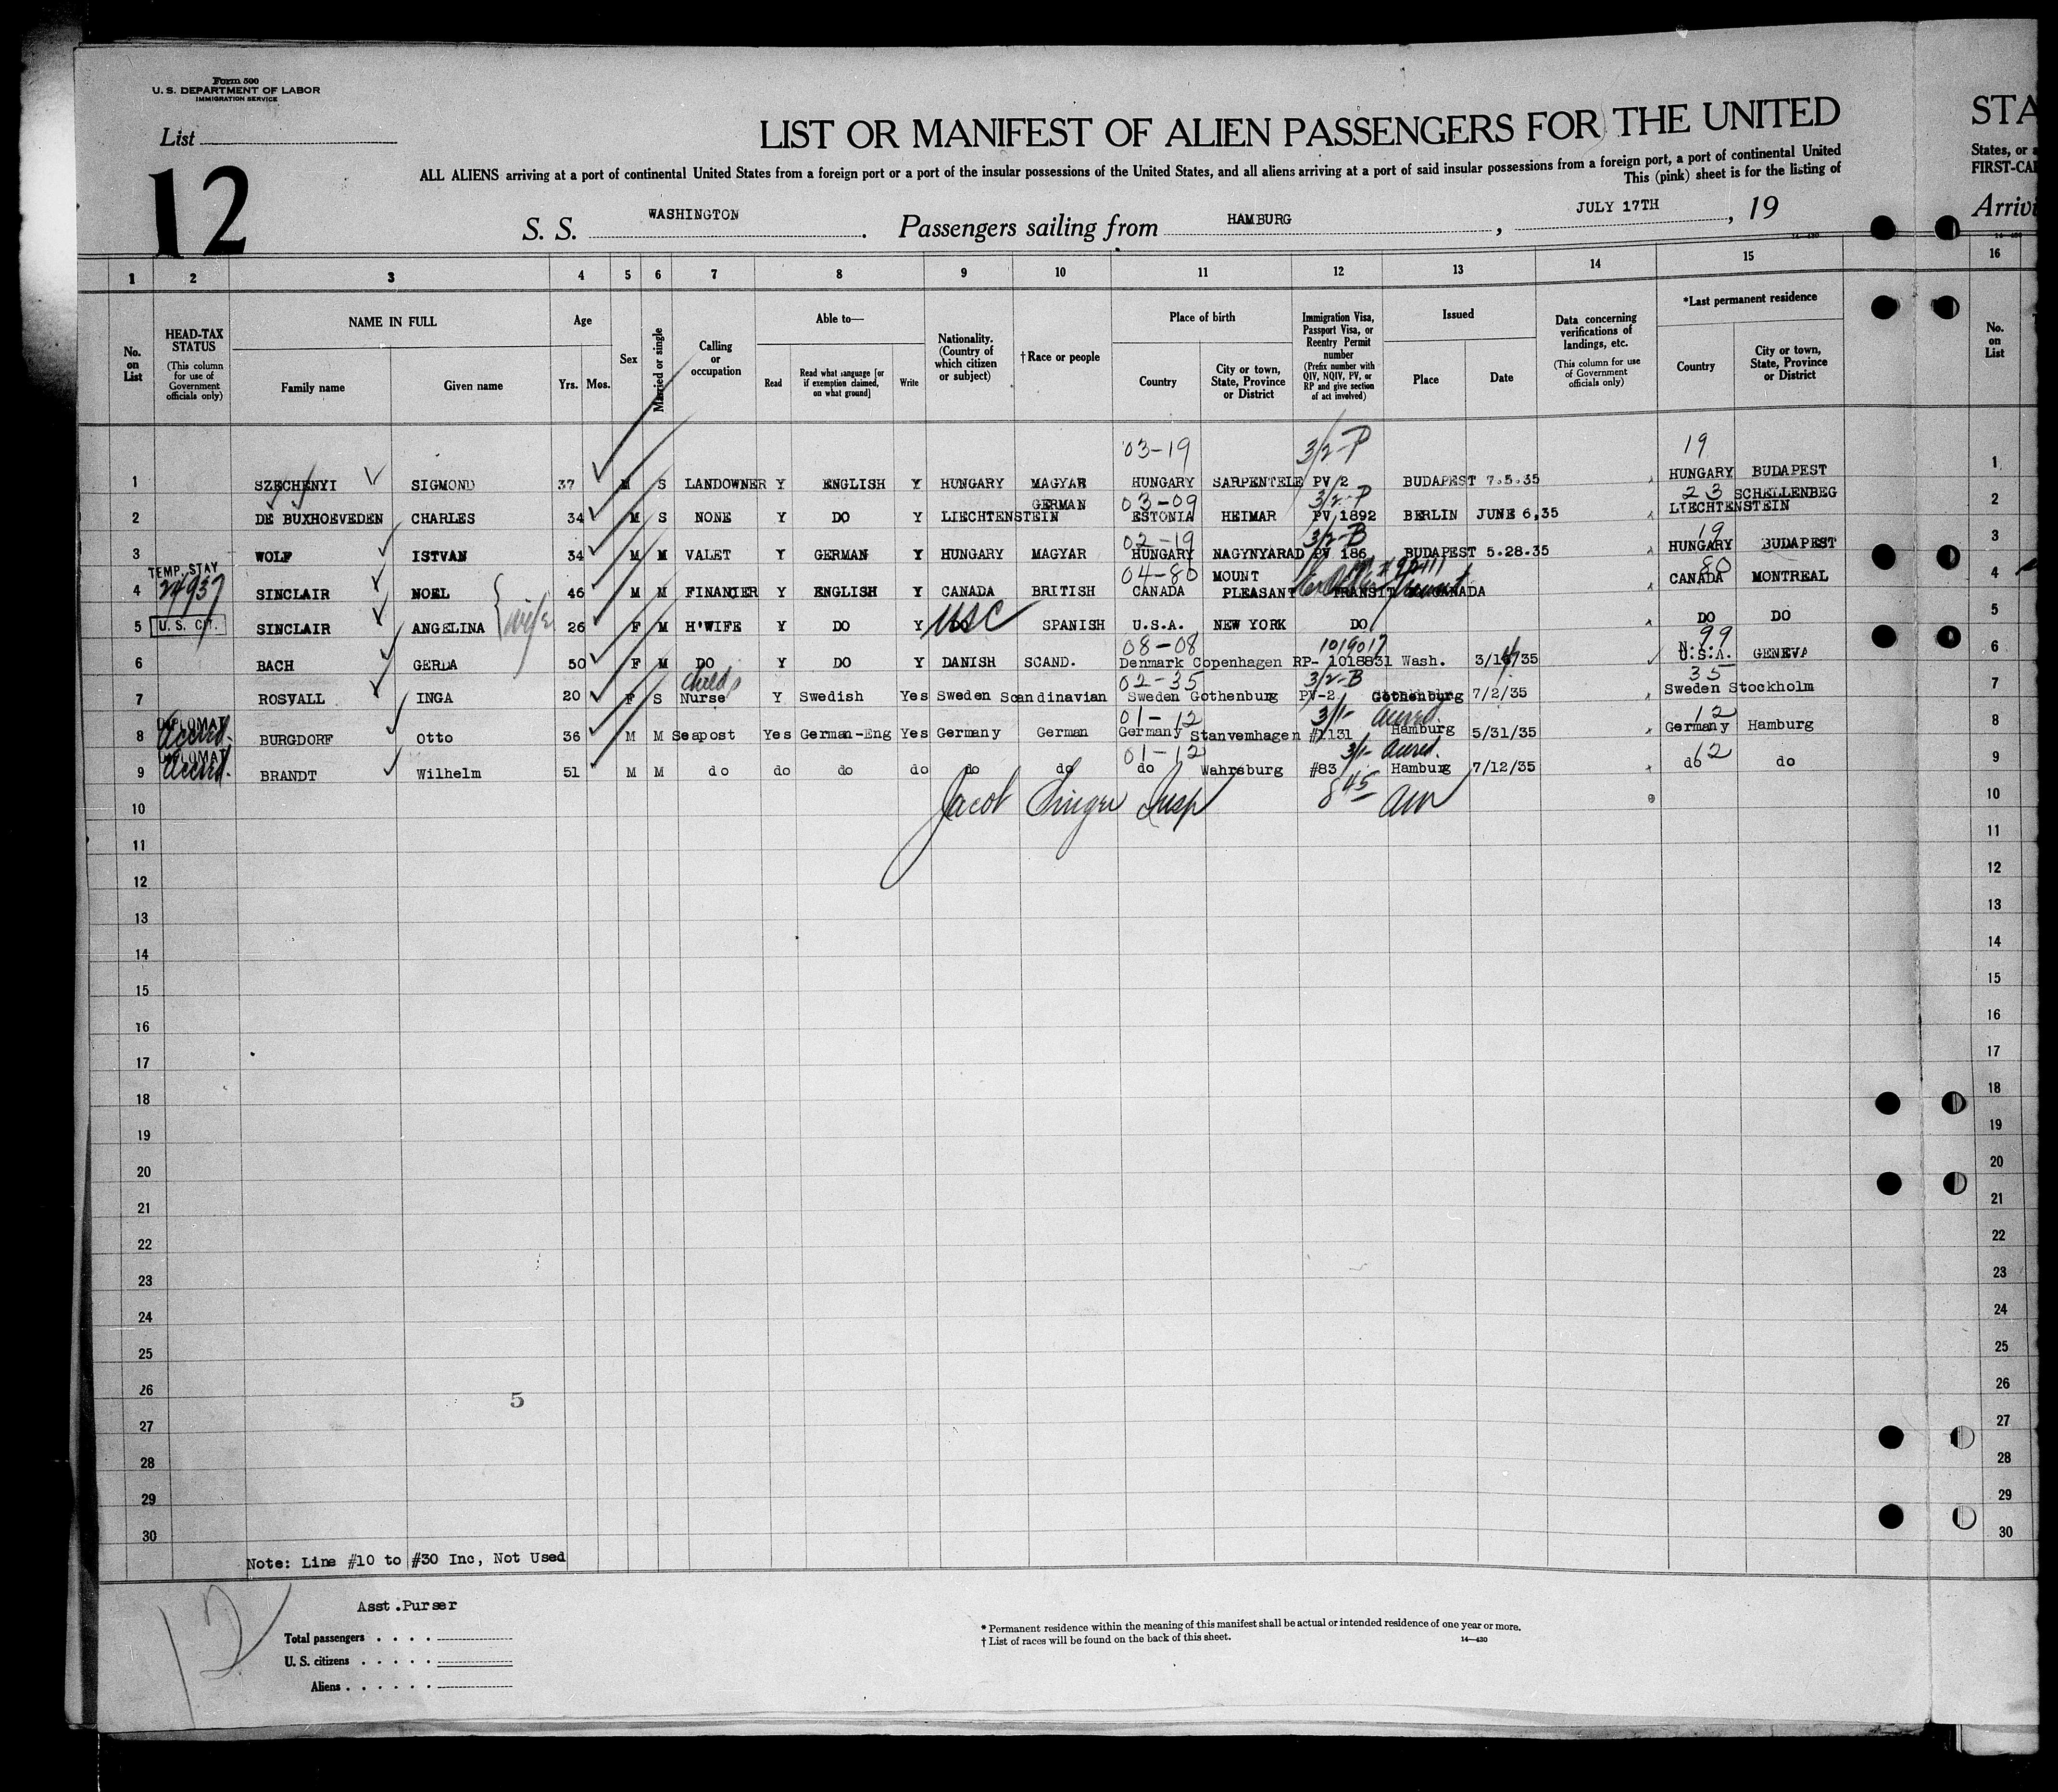 Form 500
U. S. DEPARTMENT OF LABOR
IMMIGRATION SERVICE
List
12
LIST OR MANIFEST OF ALIEN PASSENGERS FOR THE UNITED
STA
ALL ALIENS arriving at a port of continental United States from a foreign port or a port of the insular possessions of the United States, and all aliens arriving at a port of said insular possessions from a foreign port, a port of continental United
States, or a
This (pink) sheet is for the listing of
FIRST-CA
S. S. WASHINGTON. Passengers sailing from HAMBURG, JULY 17TH, 19
Arrivi
1 2 3 4 5 6 7 8 9 10 11 12 13 14 15 16
No. on List
HEAD-TAX STATUS (This column for use of Government officials only)
NAME IN FULL Family name Given name
Age Yrs. Mos.
Sex
Married or single
Calling or occupation
Able to— Read Read what language [or if exemption claimed, on what ground] Write
Nationality. (Country of which citizen or subject)
†Race or people
Place of birth Country City or town, State, Province or District
Immigration Visa, Passport Visa, or Reentry Permit number (Prefix number with QIV, NQIV, PV, or RP and give section of act involved)
Issued Place Date
Data concerning verifications of landings, etc. (This column for use of Government officials only)
*Last permanent residence Country City or town, State, Province or District
No. on List
03-19 3/2-P 19
1 SZECHENYI SIGMOND 37 M S LANDOWNER Y ENGLISH Y HUNGARY MAGYAR HUNGARY SARPENTELE PV 2 BUDAPEST 7.5.35 HUNGARY BUDAPEST 1
GERMAN 03-09 3/2-P 23 SCHELLENBEG
2 DE BUXHOEVEDEN CHARLES 34 M S NONE Y DO Y LIECHTENSTEIN ESTONIA HEIMAR PV 1892 BERLIN JUNE 6,35 LIECHTENSTEIN 2
02-19 3/2-B 19
3 WOLF ISTVAN 34 M M VALET Y GERMAN Y HUNGARY MAGYAR HUNGARY NAGYNYARAD PV 186 BUDAPEST 5.28.35 HUNGARY BUDAPEST 3
TEMP. STAY 04-80 MOUNT 80
4 24937 SINCLAIR NOEL 46 M M FINANIER Y ENGLISH Y CANADA BRITISH CANADA PLEASANT TRANSIT CANADA CANADA MONTREAL 4
5 U. S. CIT. SINCLAIR ANGELINA wife 26 F M H'WIFE Y DO Y DO USC SPANISH U.S.A. NEW YORK DO DO DO 5
08-08 1019017 N.Y. 99
6 BACH GERDA 50 F M DO Y DO Y DANISH SCAND. Denmark Copenhagen RP- 1018831 Wash. 3/16/35 U.S.A. GENEVA 6
Child's 02-35 3/2-B 35
7 ROSVALL INGA 20 F S Nurse Y Swedish Yes Sweden Scandinavian Sweden Gothenburg PV-2 Gothenburg 7/2/35 Sweden Stockholm 7
DIPLOMAT 01-12 3/1- Accred. 12
8 Accred. BURGDORF Otto 36 M M Seapost Yes German-Eng Yes Germany German Germany Stanvemhagen #1131 Hamburg 5/31/35 Germany Hamburg 8
DIPLOMAT 01-12 3/1- Accred. 12
9 Accred. BRANDT Wilhelm 51 M M do do do do do do do Wahrsburg #83 Hamburg 7/12/35 do do 9
10 Jacob Singer Insp 8 45 am 10
11 11
12 12
13 13
14 14
15 15
16 16
17 17
18 18
19 19
20 20
21 21
22 22
23 23
24 24
25 25
26 5 26
27 27
28 28
29 29
30 30
Note: Line #10 to #30 Inc, Not Used
12
Asst.Purser
Total passengers . . . .
U. S. citizens . . . . .
Aliens . . . . . .
* Permanent residence within the meaning of this manifest shall be actual or intended residence of one year or more.
† List of races will be found on the back of this sheet.
14—430